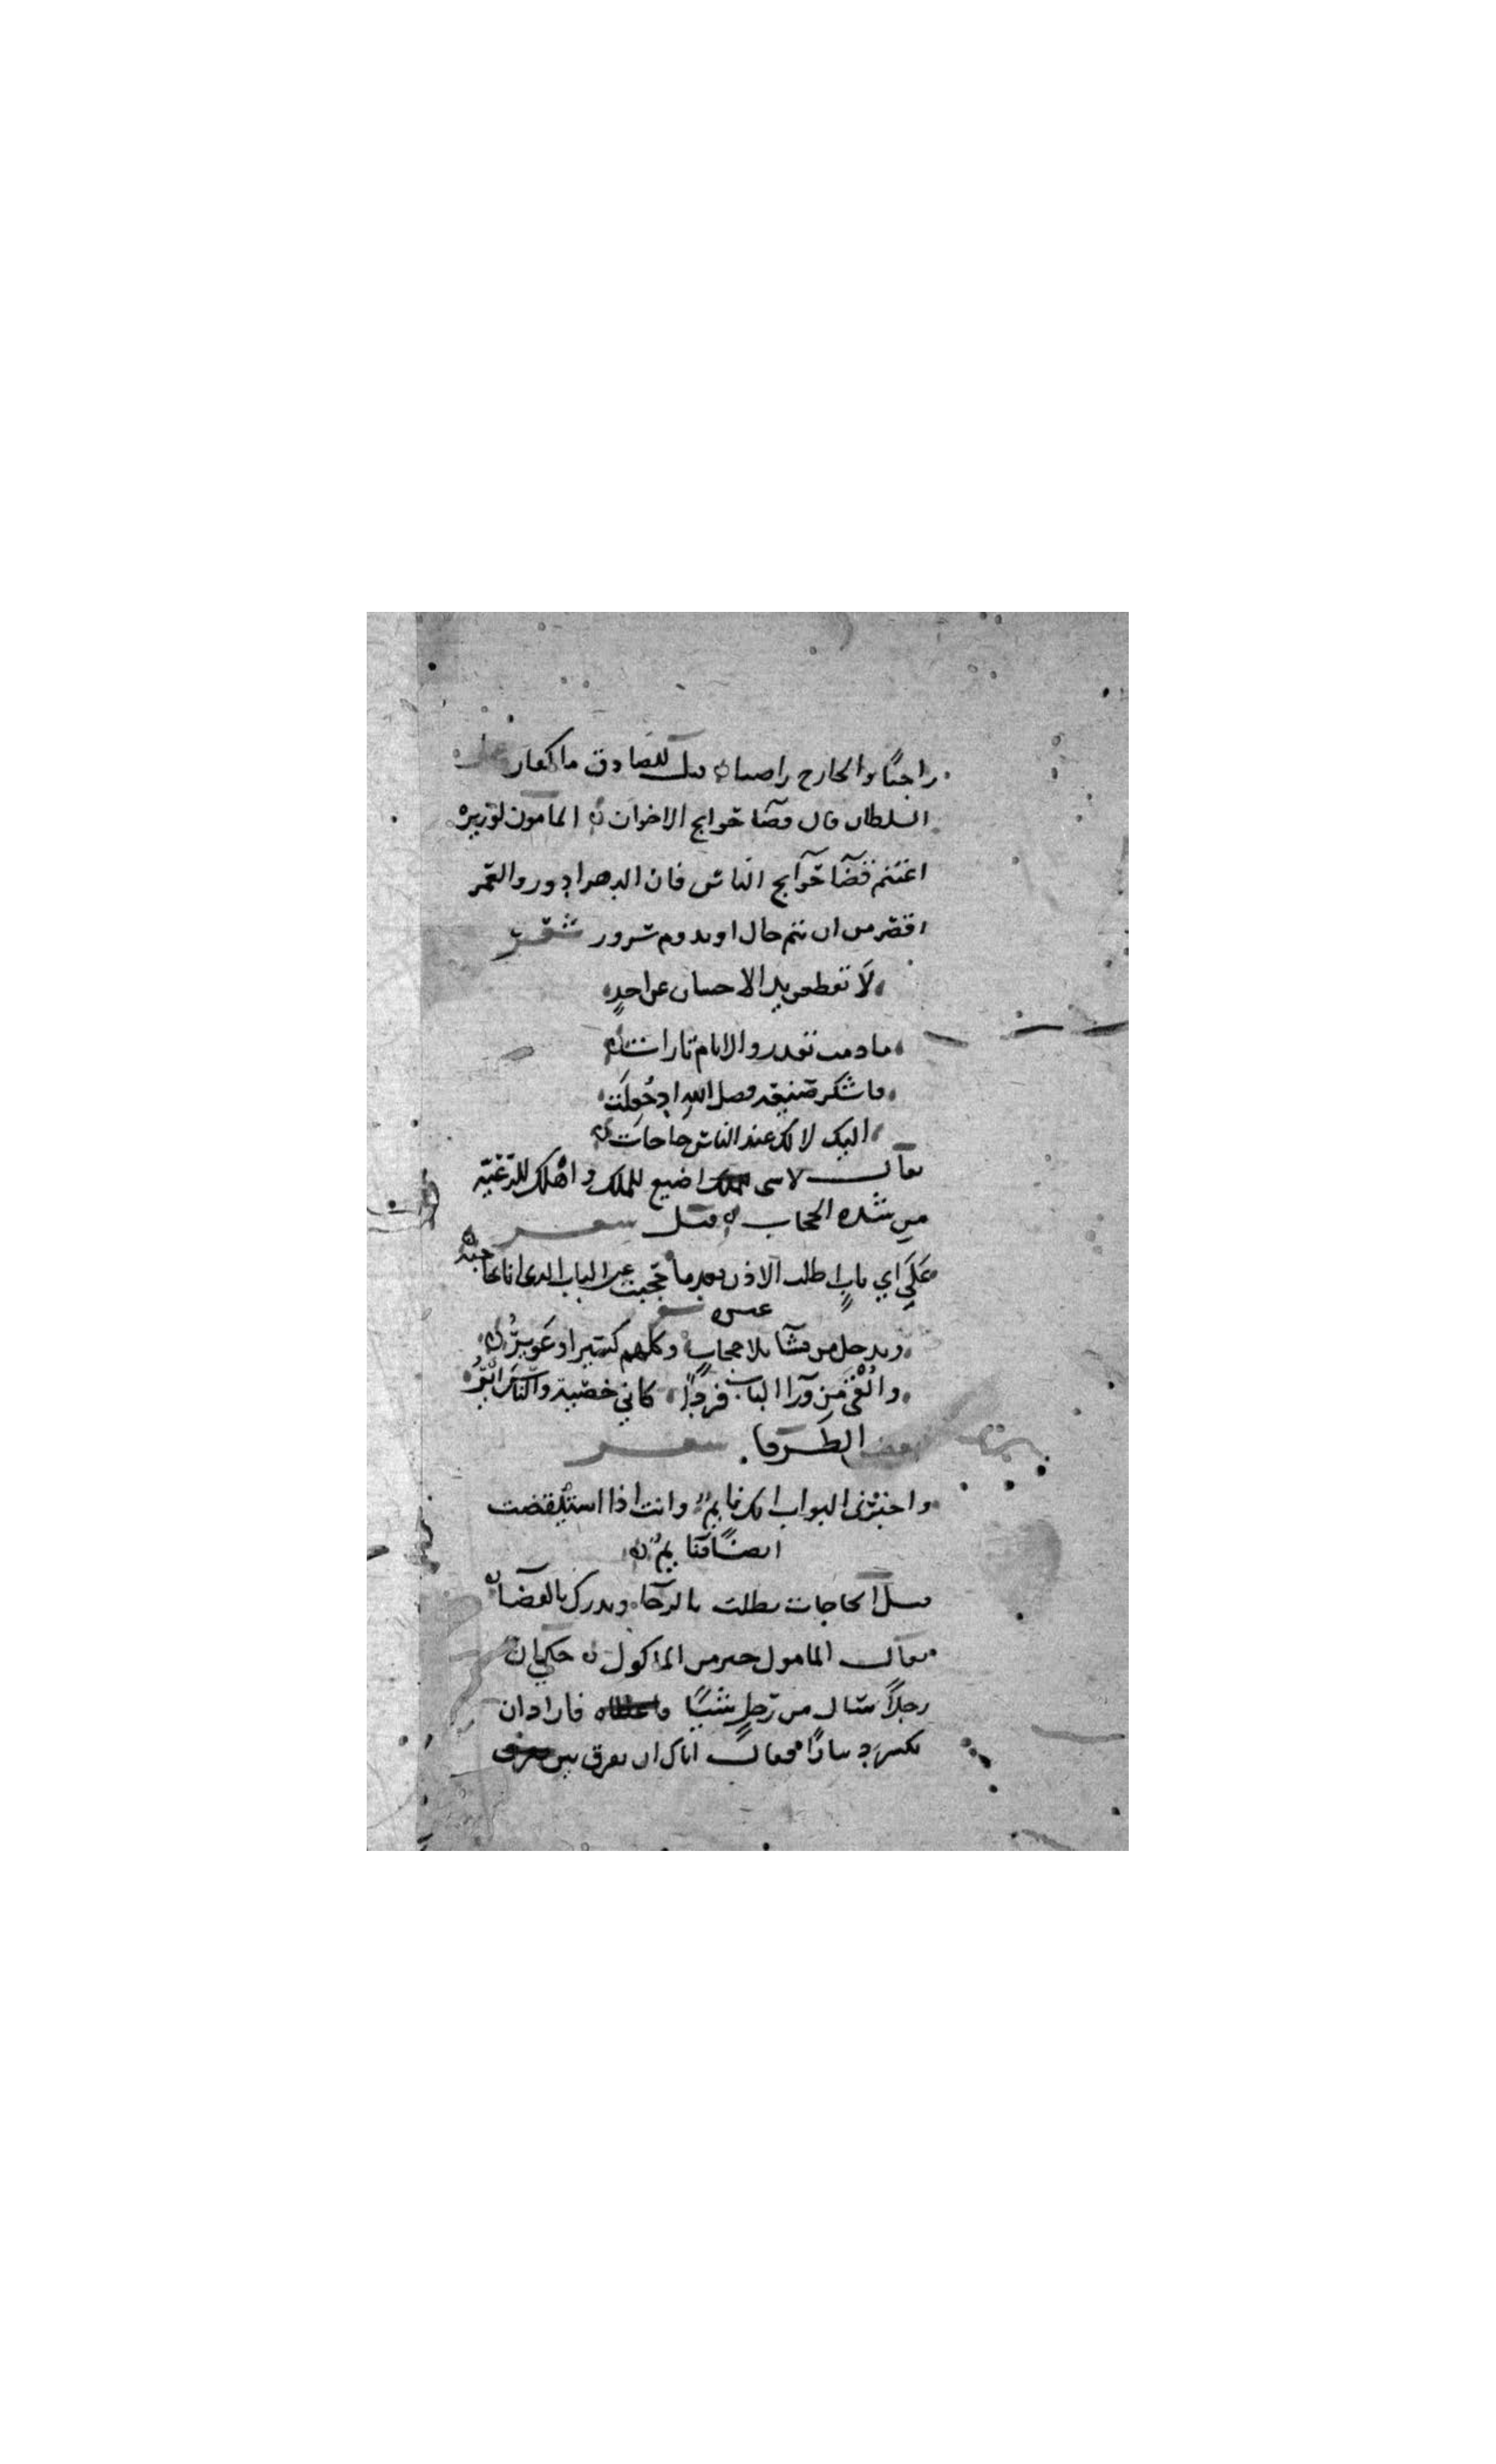 راجيًا والخارج راضيا ه قيل للصادق ما كفارة عمل
السلطان قال قضا حوايج الاخوان ه المامون لوزيره
اغتنم قضآ حوآيج الناس فان الدهر ادور والعمر
اقصر من ان يتم حال او يدوم سرور شعر
لَا تقطعن يد الاحسان عن احدٍ
ما دمت تقدر والايام تارات ه
فاشكر صنيعه فضل الله اذ جُعِلَت
اليك لا لك عند الناس حَاجَات ه
يقال لا شى اضيع للملك و اهلك للرعيّه
من شده الحجاب ه قيل شعر
عَلَي اي بابٍ اطلب الاذن بعد ما حجبت عن الباب الذى انا حاجبه ه
غيره شعر
ويدخل من يشآ بلا حجابٍ وكلهم كسير او عَوِيرُ ه
والْقَى مِن ورآ الباب فردًا كاني خصية والناس ايرُ
بعض الظرفا شعر
واخبرنى البواب انك نايمٌ وانت اذا استيقضت
ايضًا فنايمُ ه
قيل الحاجات تطلب بالرجآ وتدرك بالقضآ ه
يقال المامول خير من الماكول ه حكي ان
رجلاً سال من رجلٍ شيئًا فاراد ان
يكسر دينارًا فقال اياك ان تفرق بين